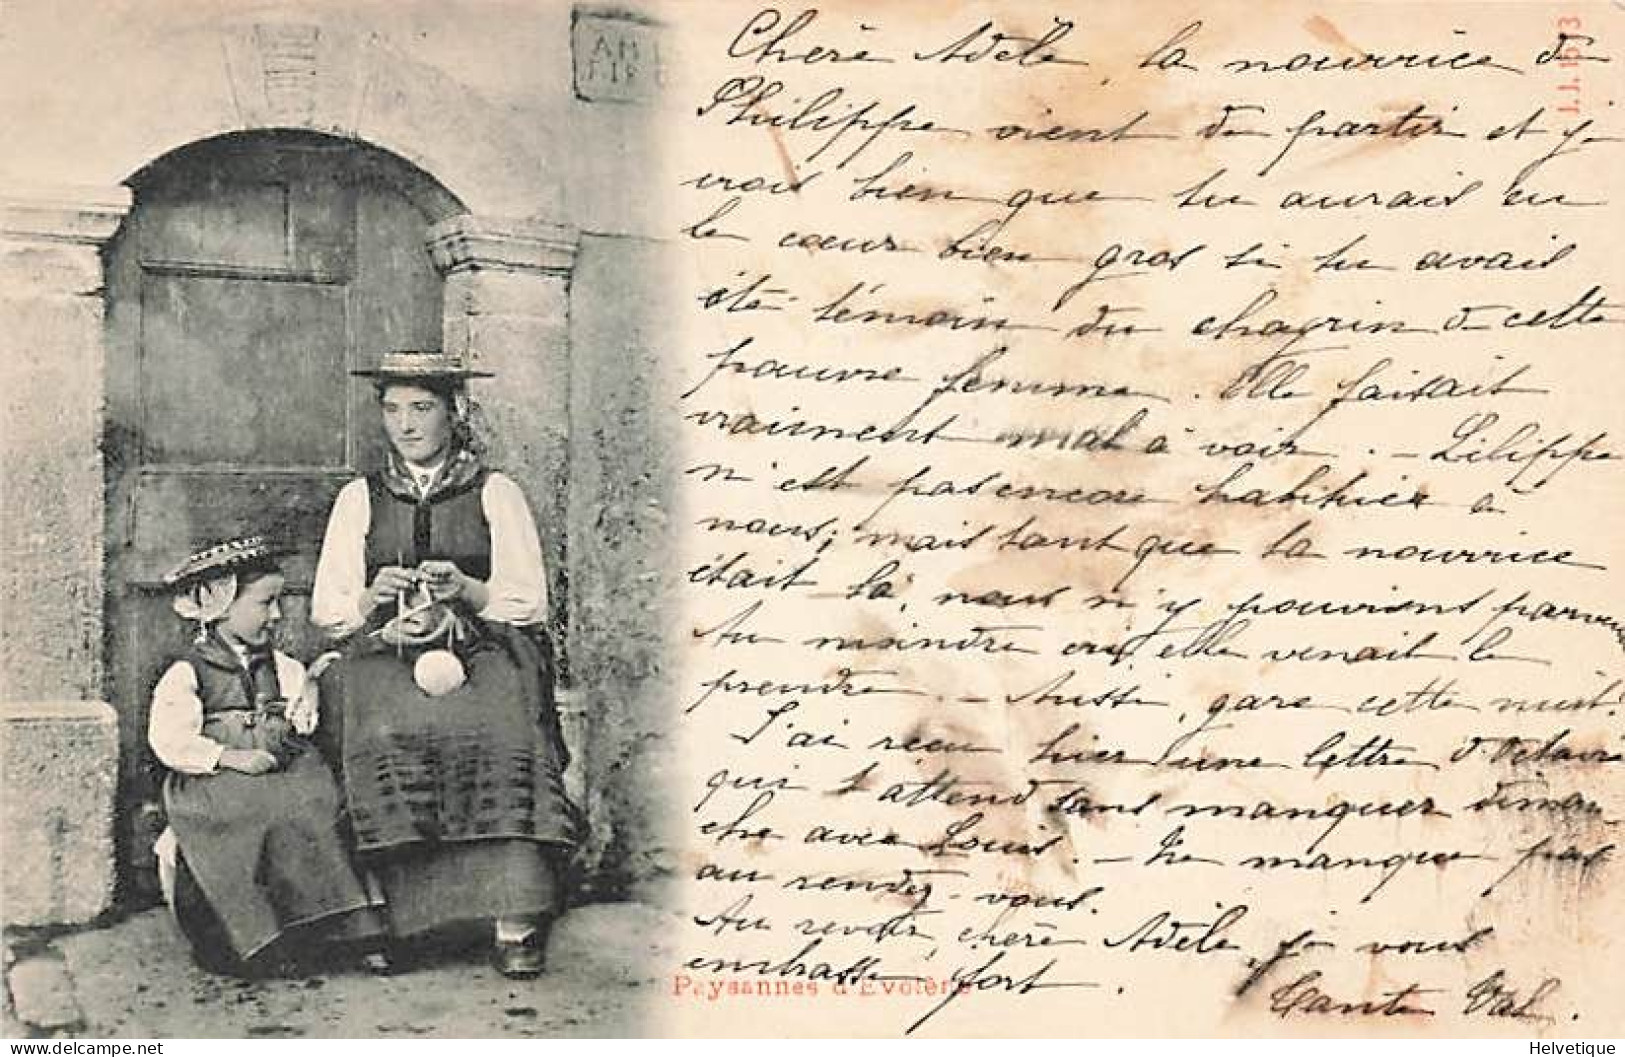 AM
J.J. 1573
Chère Adèle, la nourrice de
Philippe vient de partir et je
crois bien que tu aurais eu
le cœur bien gros si tu avais
été témoin du chagrin de cette
pauvre femme. Elle faisait
vraiment mal à voir. — Lilippe
n'est pas encore habituée à
nous; mais tant que la nourrice
était là, nous n'y pouvions parvenir
Au moindre cri, elle venait le
prendre. — Aussi, gare cette nuit!
J'ai reçu hier une lettre d'Octavie
qui t'attend sans manquer diman-
che avec Louis. — Ne manque pas
au rendez-vous.
Au revoir, chère Adèle, je vous
embrasse fort.
Paysannes d'Evolène
Tante Val.
delcampe.net
Helvetique